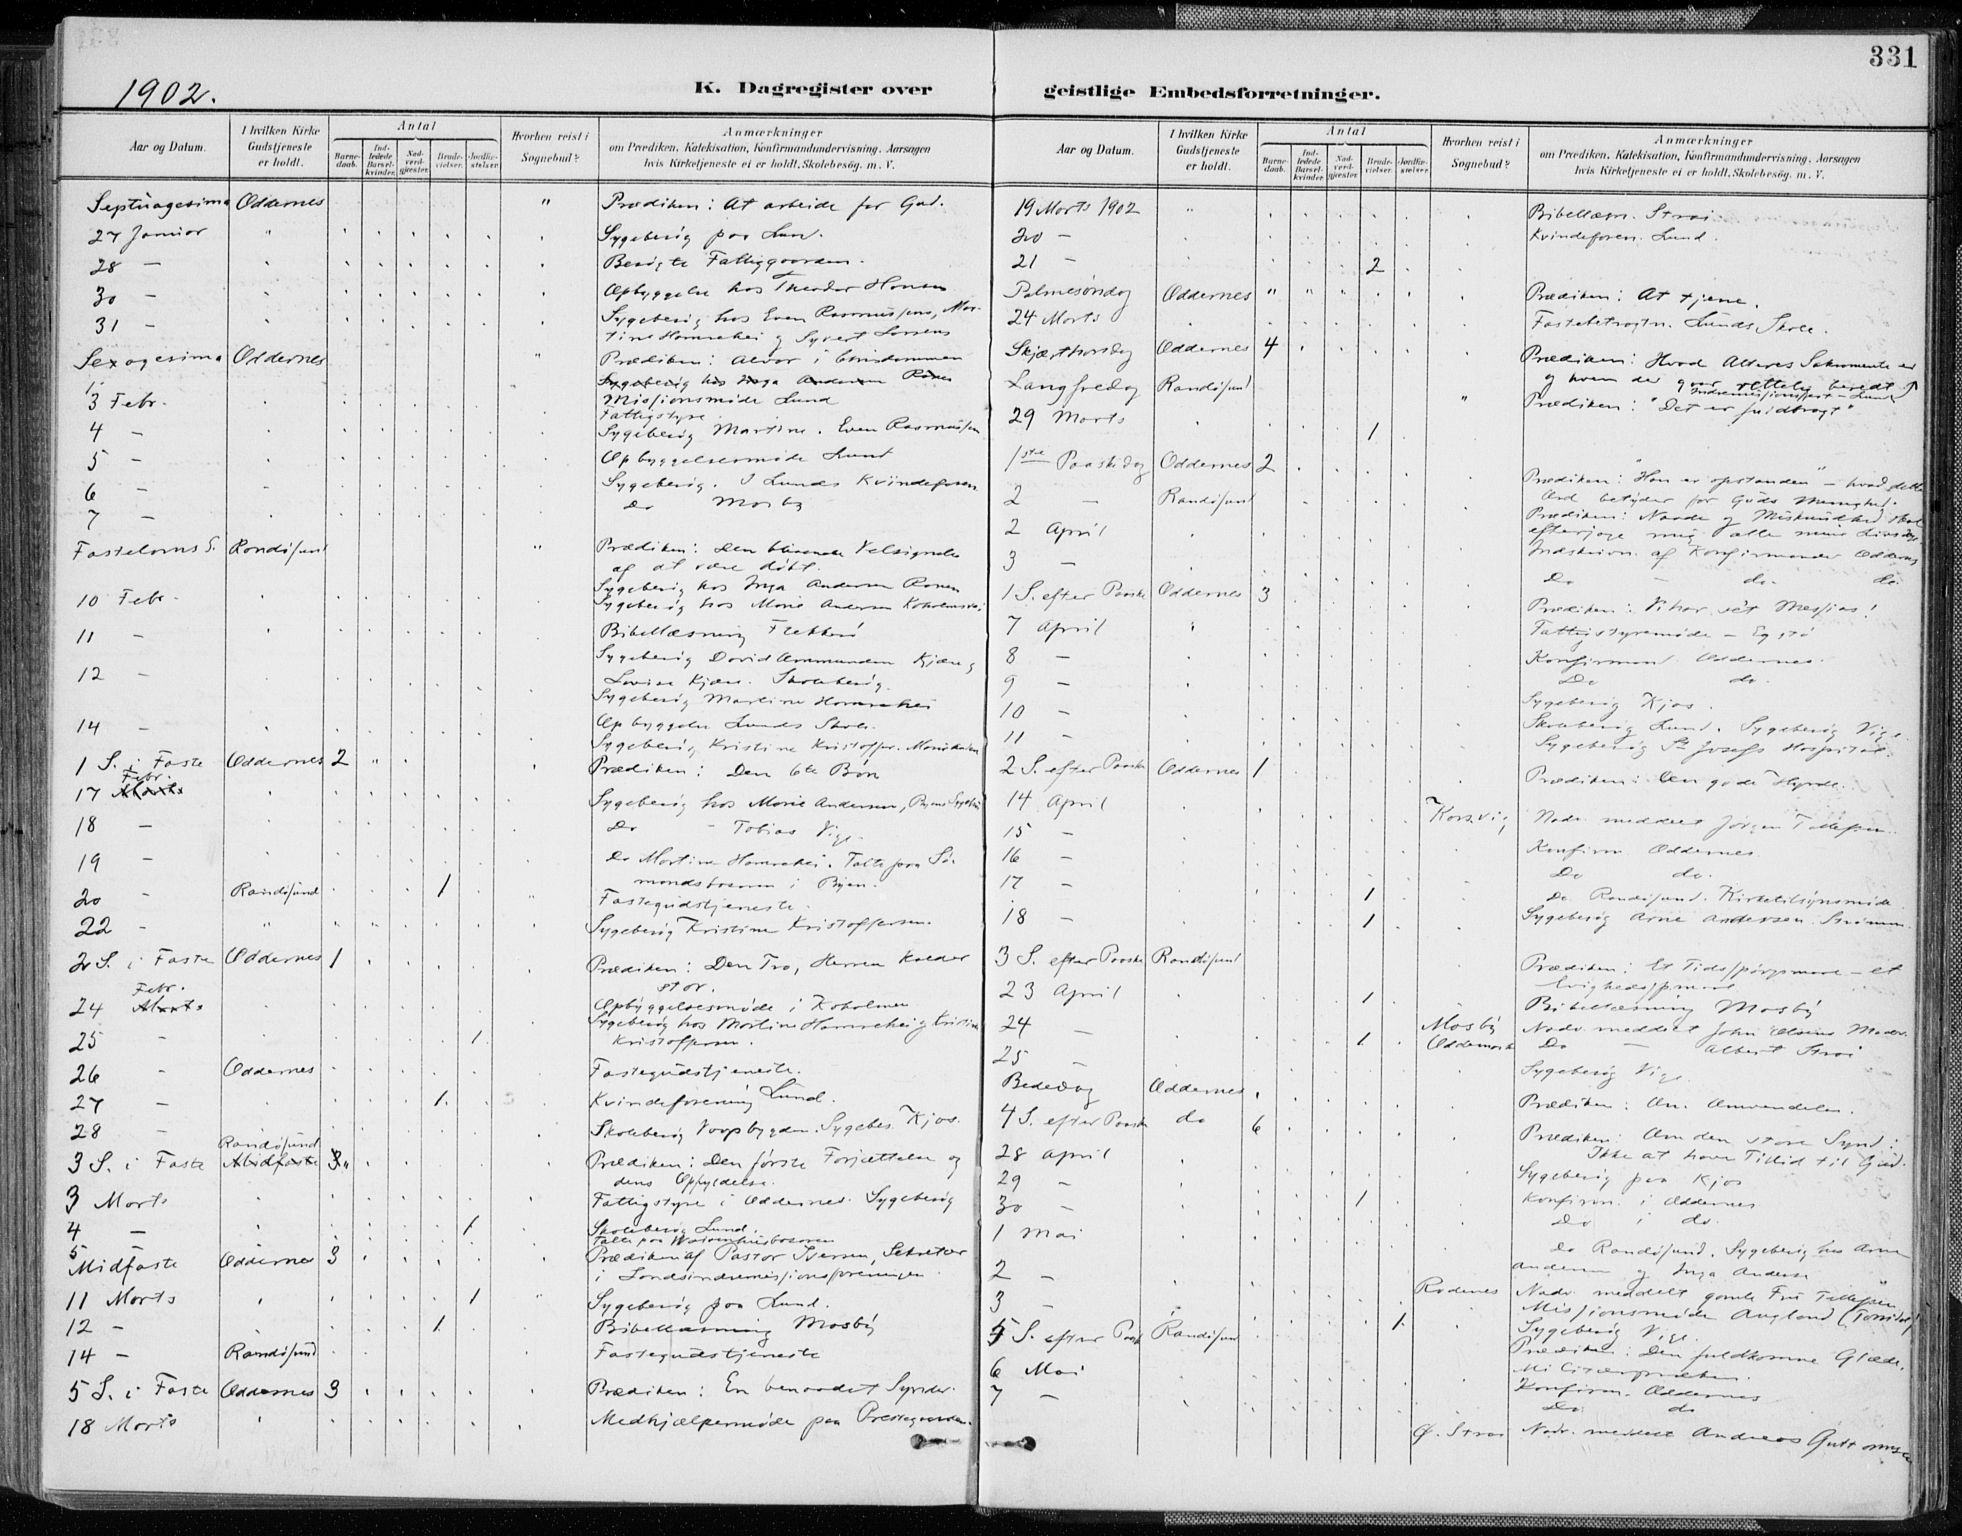 331
1902.
K. Dagregister over geistlige Embedsforretninger.
Aar og Datum.
I hvilken Kirke Gudstjeneste er holdt.
Antal
Barnedaab.
Indledede Barselkvinder.
Nadverdgjæster.
Brudevielser.
Jordfæstelser.
Hvorhen reist i Sognebud?
Anmærkninger
om Prædiken, Katekisation, Konfirmandundervisning, Aarsagen
hvis Kirketjeneste ei er holdt, Skolebesøg, m. V.
Septuagesima Oddernes " Prædiken: At arbeide for Gud.
27 Januar " Sygebesøg paa Lund.
28 — Besøgte Fattiggaarden.
30 — Opbyggelse hos Theodor Hansen
31 — Sygebesøg hos Even Rasmussens, Mar-
tine Hamrehei og Syvert Larsens
Sexagesima Oddernes " Prædiken: Alvor i Kristendommen
Sygebesøg hos Inga Andersen Rønes
3 Febr. Missionsmøde Lund
Fattigstyre.
4 — Sygebesøg Martine. Even Rasmussen
5 — Opbyggelsesmøde Lund
6 — Sygebesøg. I Lunds Kvindeforen.
7 — Do Mosby
Fastelavns S. Randøsund " Prædiken: Den blivende Velsignelse
af at være døbt.
Sygebesøg hos Inga Andersen Rønes
10 Febr. Sygebesøg hos Marie Andersen
11 — Bibellæsning Flekkerø
12 — Sygebesøg David Ommundsen Kjære og
Lovise Kjære. Skolebesøg.
Sygebesøg Martine Hamrehei
14 — Opbyggelse Lunds Skole.
Sygebesøg Kristine Kristoffer.
1 S. i Faste Oddernes 2 " Prædiken: Den 6te Bøn
Febr.
17 Marts Sygebesøg hos Marie Andersen, Byens Sygehus
18 — Do — Tobias Vige.
19 — Do Martine Hamrehei. Talte paa Sø-
mandsbasaren i Byen.
20 - Randøsund 1 " Fastegudstjeneste.
22 - " " " Sygebesøg Kristine Kristoffersen.
2 S. i Faste Oddernes 1 Prædiken: Den Tro, Herren kalder
stor.
Febr.
24 Marts Opbyggelsesmøde i Kokolmen
Sygebesøg hos Martine Hamrehei og Kristine
25 - 1 Kristoffersen.
26 - Oddernes Fastegudstjeneste.
27 - 1 Kvindeforening Lund.
28 - Skolebesøg Voopbygden. Sygebes. Kjos.
Randøsund
3 S. i Faste Midfaste 3 " Prædiken: Den første Forjættelse og
dens Opfyldelse.
3 Marts Fattigstyre i Oddernes. Sygebesøg
4 — 1 Skolebesøg Lund.
5 Talte paa Waisenhusbasaren
Midfaste Oddernes 3 Prædiken af Pastor Iversen, Sekretær
i Landsindremissionsforeningen
11 Marts 1 " Sygebesøg paa Lund.
12 - 1 Bibellæsning Mosby
14 - Randøsund Fastegudstjeneste
5 S. i Faste Oddernes 3 Prædiken: En benaadet Synder.
18 Marts Medhjælpermøde paa Prestegaarden.
Aar og Datum.
I hvilken Kirke Gudstjeneste er holdt.
Antal
Barnedaab.
Indledede Barselkvinder.
Nadverdgjæster.
Brudevielser.
Jordfæstelser.
Hvorhen reist i Sognebud?
Anmærkninger
om Prædiken, Katekisation, Konfirmandundervisning, Aarsagen
hvis Kirketjeneste ei er holdt, Skolebesøg, m. V.
19 Marts 1902 " Bibellæsn. Strai
20 — Kvindeforen. Lund.
21 — 2
Palmesøndag Oddernes " " " Prædiken: At tjene.
24 Marts Fastebetragtn. Lunds Skole.
Skjærthorsdag Oddernes 4 Prædiken: Hvad Alterets Sakramente er
og hvem der gaar rettelig beredt
Indremissionsfest - Lund
Langfredag Randøsund " Prædiken: "Det er fuldbragt"
29 Marts 1
1ste Paaskedag Oddernes 2 Prædiken: "Han er opstanden" - hvad dette
Ord betyder for Guds Menighed.
2 — Randøsund Prædiken: Naade og Miskundhed skal
efterjage mig alle mine Livsdage
2 April Indskrivn. af Konfirmander Oddernes
3 — Do — do. do.
1 S. efter Paaske Oddernes 3 Prædiken: Vi har set Messias!
7 April Fattigstyremøde - Egstø
8 — Konfirmand. Oddernes.
9 — Do do.
10 — Sygebesøg Kjos.
11 — Skolebesøg Lund. Sygebesøg Vige
Sygebesøg St Josefs Hospital.
2 S. efter Paaske Oddernes 1 Prædiken: Den gode Hyrde.
14 April Korsvig Nadv. meddelt Jørgen Tellefsen.
15 — Konfirm Oddernes
16 — Do do.
17 — 1 Do Randøsund. Kirketilsynsmøde
18 — 1 Sygebesøg Arne Andersen Strømme
3 S. efter Paaske Randøsund Prædiken: Et Tidsspørgsmaal - et
Evighedsspmaal
23 April 1 Bibellæsning Mosby
24 — Mosby Nadv. meddelt John
1 Oddemark Do — Albert Strai
25 — Sygebesøg Vige
Bededag Oddernes Prædiken: Om Omvendelse.
4 S. efter Paaske do 6 Prædiken: Om den store Synd:
Ikke at have Tillid til Gud.
28 April Sygebesøg paa Kjos
29 — Konfirm. i Oddernes
30 — 1 Do i do.
1 Mai Do Randøsund. Sygebesøg hos Arne
Andersen og Inga Andersen
2 — Rødenes Nadv. meddelt gamle Fru Tellefsen
3 — Missionsmøde Augland (Torridal)
1 Sygebesøg Vige.
5 S. efter Paaske Randøsund Prædiken: Den fuldkomne Glæde.
6 Mai
Konfirm. Oddernes
7 — Do do
Ø. Strai Nadv. meddelt Andreas Guttormsen